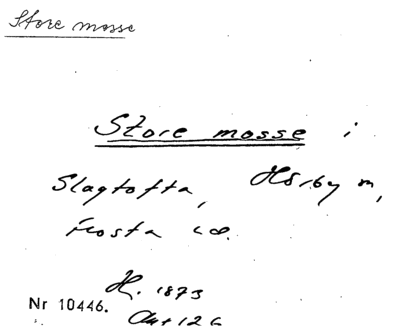 Store mosse
Store mosse i
Slagtofta, Hörby m,
Frosta
H. 1873
Nr 10446.